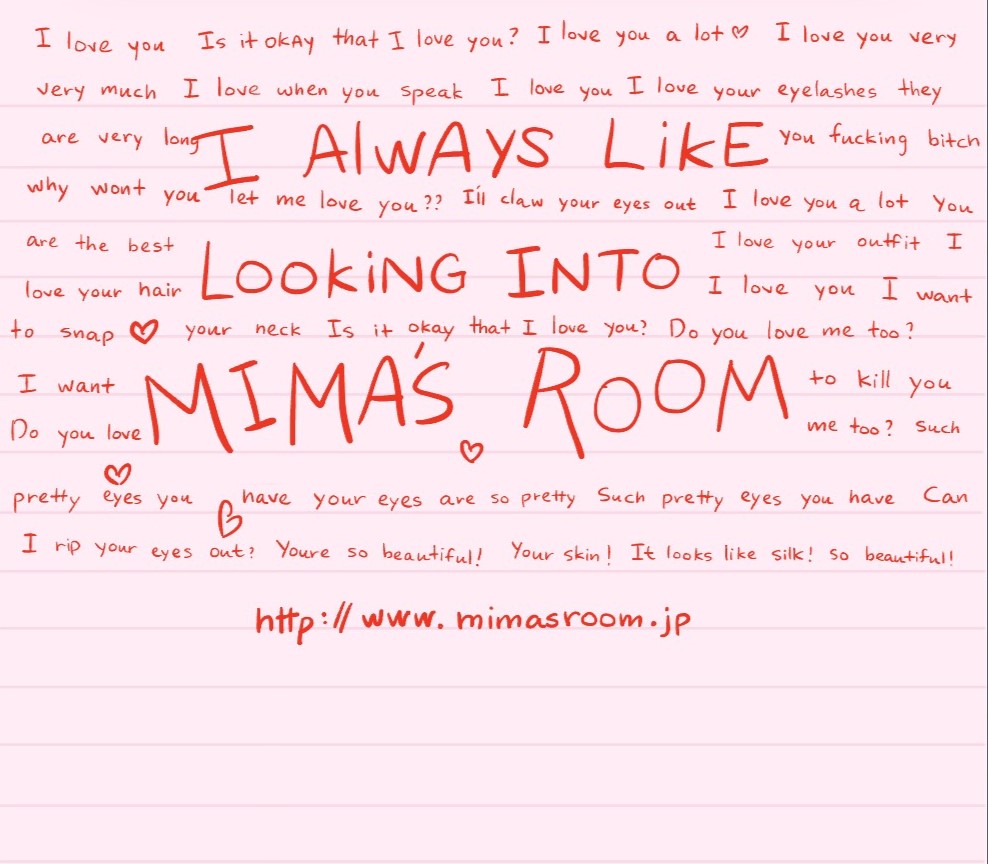 I love you Is it okAy that I love you? I love you a lot ♡ I love you very
very much I love when you speak I love you I love your eyelashes they
are very long I AlWAyS LiKE you fucking bitch
why wont you let me love you?? I'll claw your eyes out I love you a lot You
are the best LOOKiNG INTO I love your outfit I
love your hair I love you I want
to snap ♡ your neck Is it okay that I love you? Do you love me too?
I want MIMA'S ROOM to kill you
Do you love ♡ me too? Such
♡
pretty eyes you ♡ have your eyes are so pretty Such pretty eyes you have Can
I rip your eyes out? Youre so beautiful! Your skin! It looks like silk! so beautiful!
http://www.mimasroom.jp